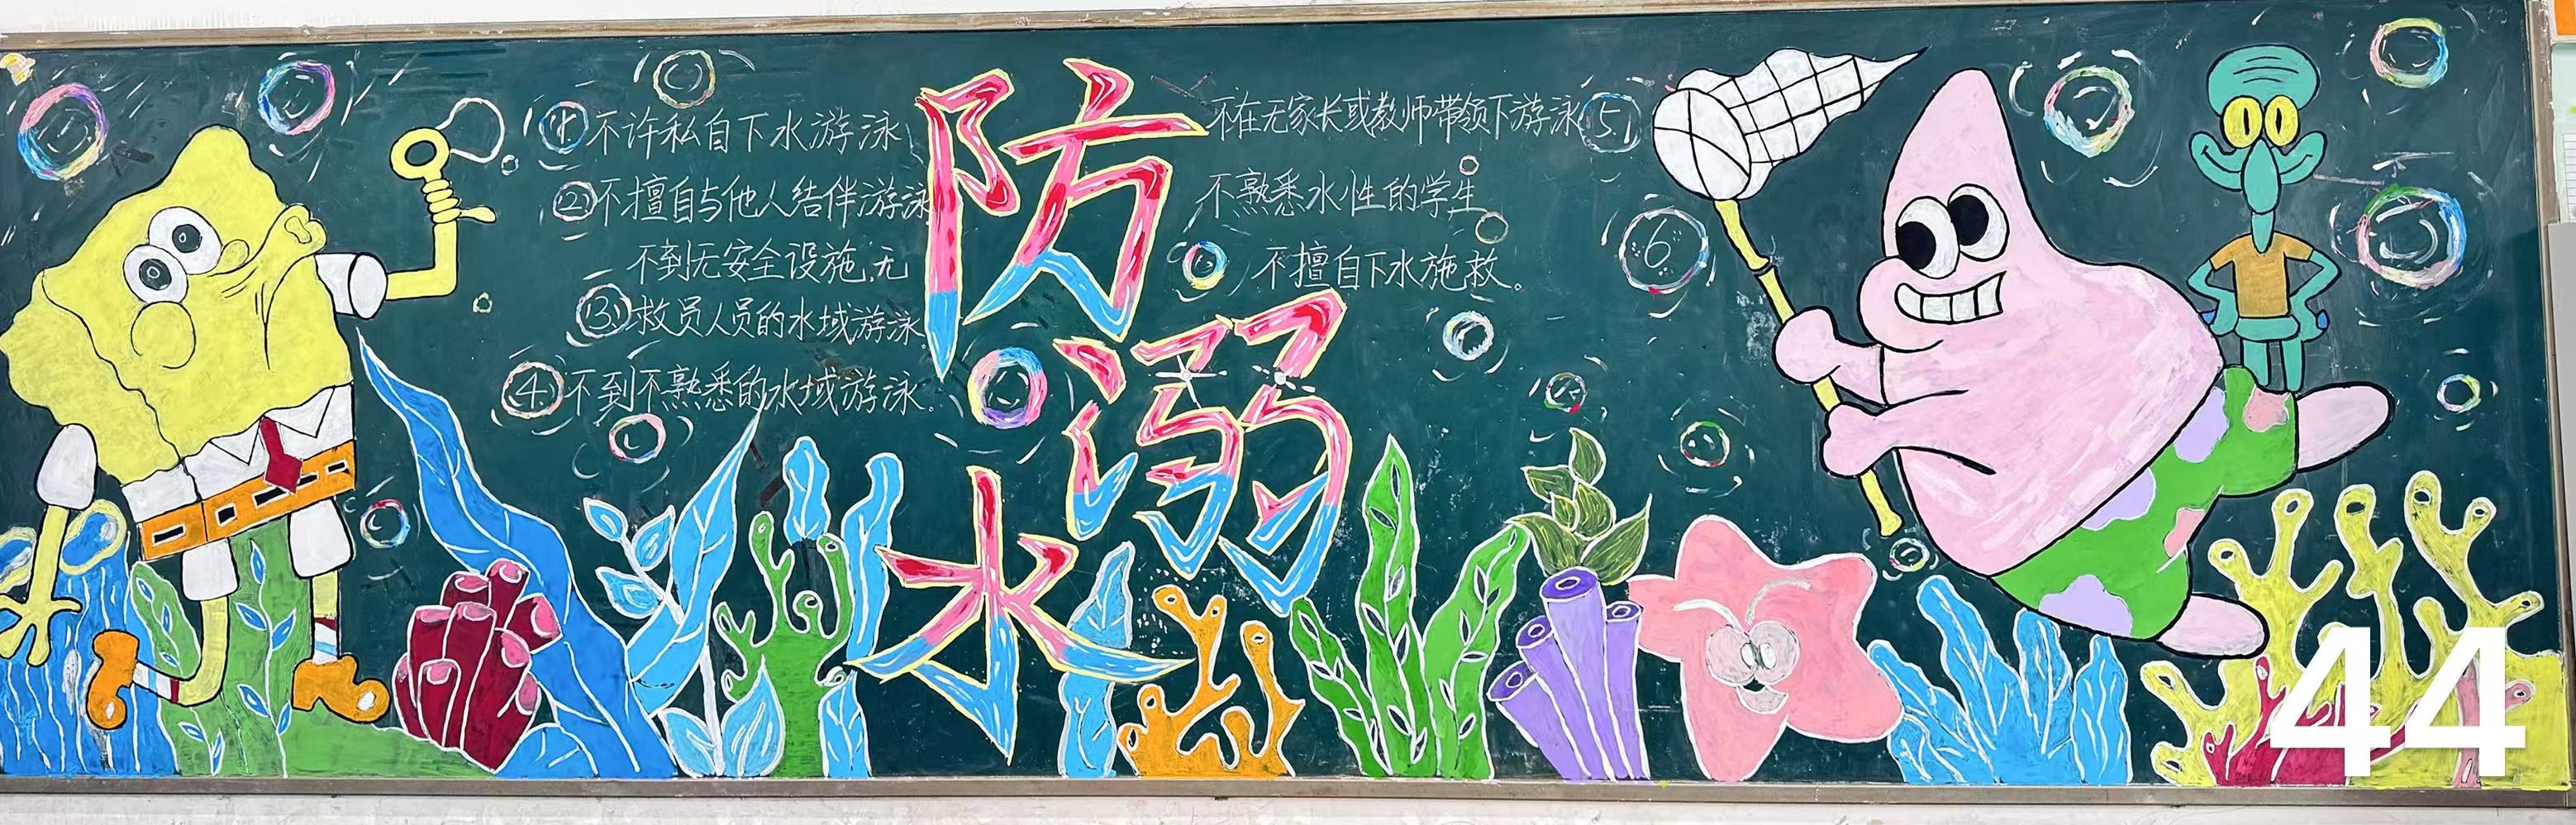 防溺水
1 不许私自下水游泳
2 不擅自与他人结伴游泳
不到无安全设施、无
3 救员人员的水域游泳
4. 不到不熟悉的水域游泳。
不在无家长或教师带领下游泳 5.
不熟悉水性的学生
6
不擅自下水施救。
44